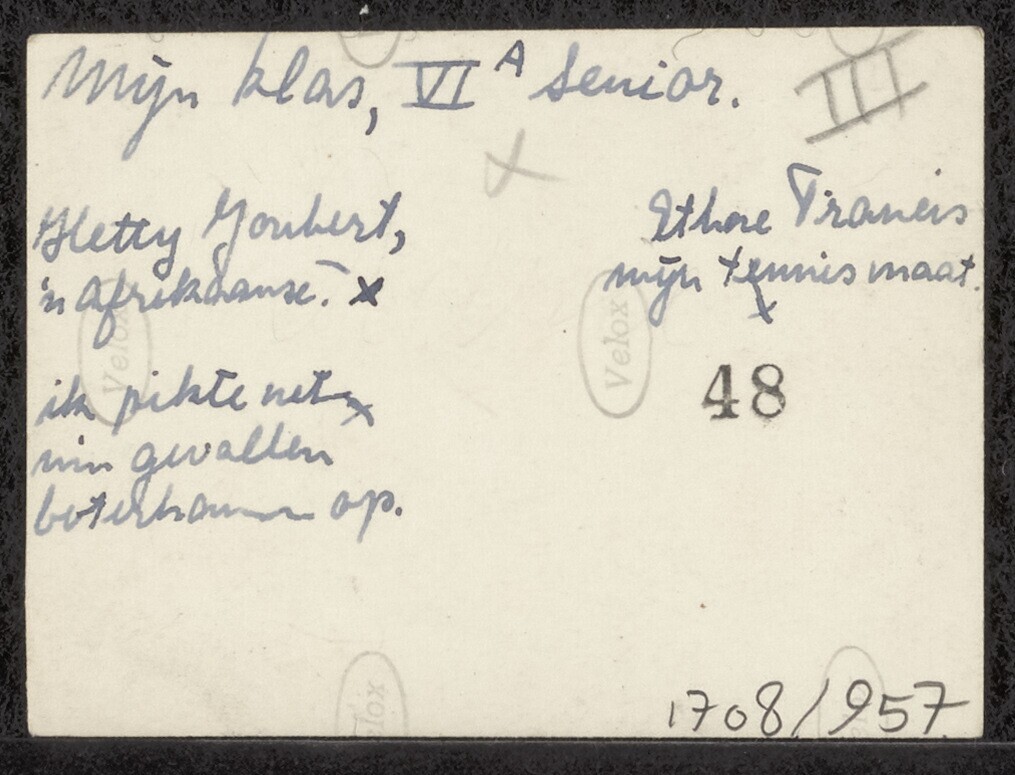 Mijn klas, VI A Senior.
III
x
Hetty Joubert,
'n Afrikaanse. x
Francis
mijn tennismaat.
x
Velox
Velox
48
ik pikte net x
mn gevallen
boterham op.
Velox
Velox
1708/957.